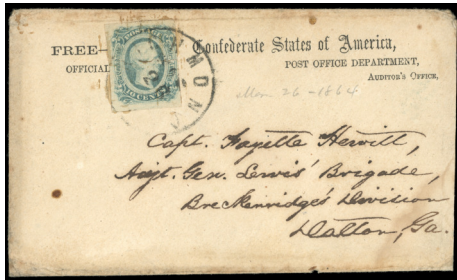 FREE— Confederate States of America,
OFFICIAL POST OFFICE DEPARTMENT,
AUDITOR'S OFFICE,
CENTS
Mar 26 - 1864
Capt. Fayette Hewitt,
Asst. Gen. Lewis' Brigade,
Breckenridge's Division
Dalton, Ga.